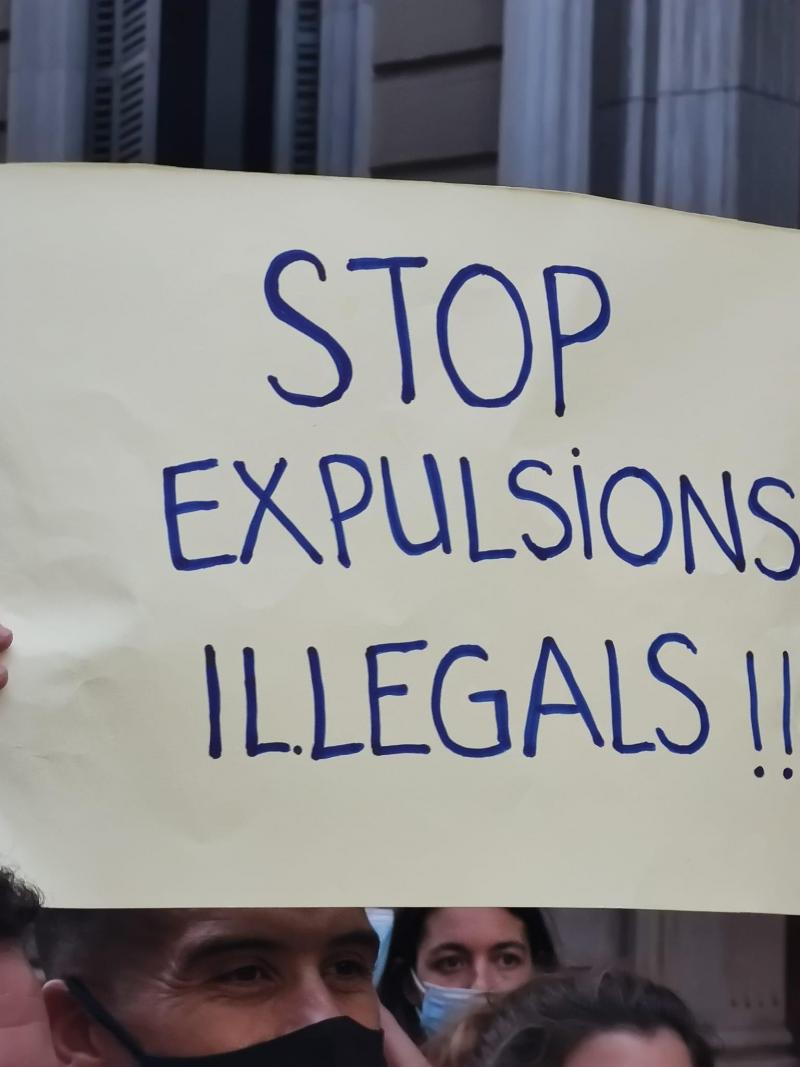 STOP
EXPULSIONS
IL.LEGALS !!